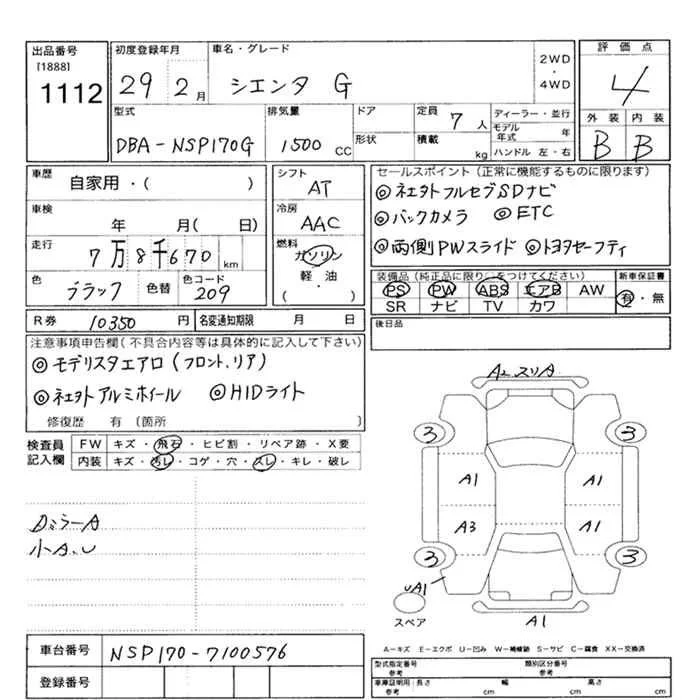 出品番号
[1888]
1112
初度登録年月
29 2月
車名・グレード
シエンタ G
2WD
・
4WD
評価点
4
外装 内装
B B
型式
DBA-NSP170G
排気量
1500 CC
ドア
形状
定員 7人
積載 kg
ディーラー・並行
モデル年式 年
ハンドル 左・右
車歴
自家用・( )
車検
年 月( 日)
走行
7万8千670km
色
ブラック
色替
色コード
209
シフト
AT
冷房
AAC
燃料
ガソリン
軽・油
( )
セールスポイント(正常に機能するものに限ります)
◎ネェヲトフルセグSDナビ
◎バックカメラ ◎ETC
◎両側PWスライド ◎トヨタセーフティ
装備品(純正品に限り○をつけてください)
PS PW ABS エアB AW
SR ナビ TV カワ
新車保証書
有・無
後日品
R券 10350円 名変通知期限 月 日
注意事項申告欄(不具合内容等は具体的に記入して下さい)
◎モデリスタエアロ(フロント、リア)
◎ネェヲトアルミホイール ◎HIDライト
修復歴 有(箇所 )
検査員記入欄
FW キズ・飛石・ヒビ割・リペア跡・X要
内装 キズ・汚レ・コゲ・穴・スレ・キレ・破レ
DミラーA
小A.U
A2 スリA
3 3
A1 A1
A3 A1
3 3
UA1
スペア
A1
A=キズ E=エクボ U=凹み W=補修跡 S=サビ C=腐食 XX=交換済
車台番号 NSP170-7100576
登録番号
型式指定番号
参考
類別区分番号
参考
車庫証明用
参考
長さ cm 幅 cm 高さ cm